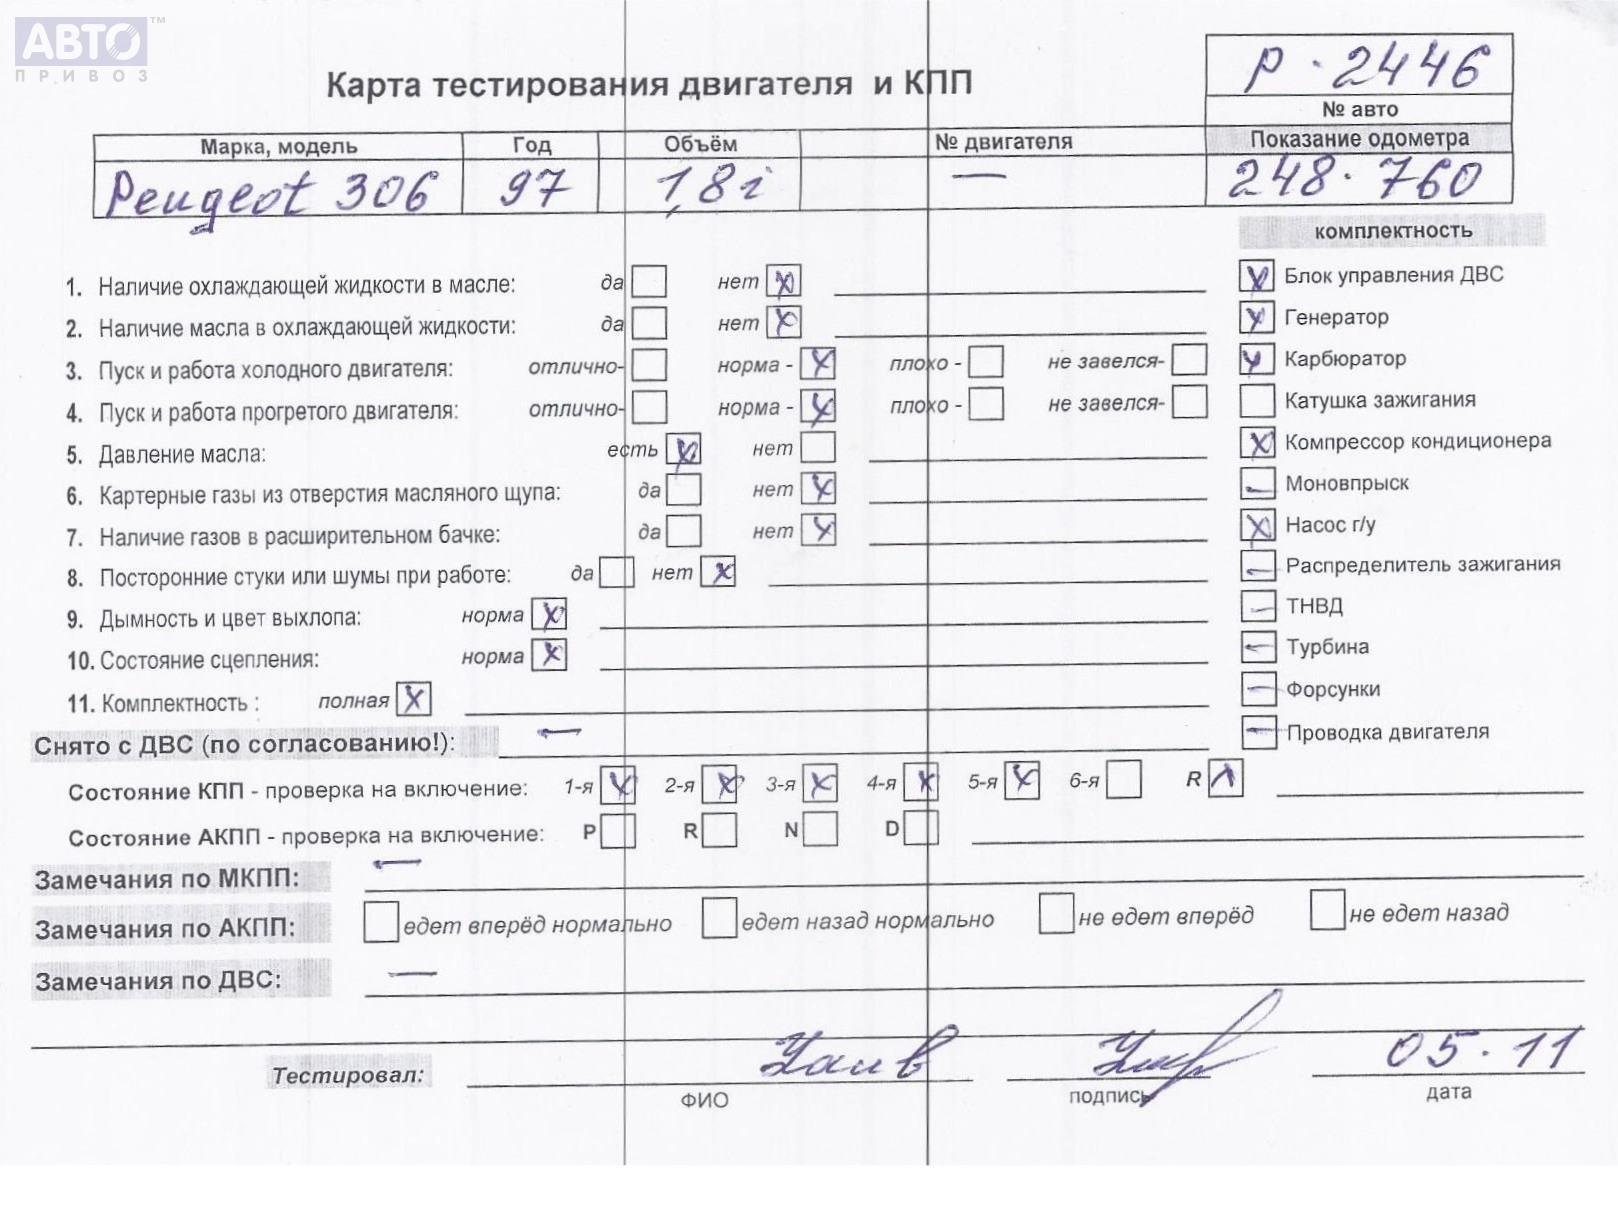 АВТО™
ПРИВОЗ
Карта тестирования двигателя и КПП
P · 2446
№ авто
Марка, модель Год Объём № двигателя Показание одометра
Peugeot 306 97 1,8i — 248·760
комплектность
1. Наличие охлаждающей жидкости в масле: да нет X
Блок управления ДВС
2. Наличие масла в охлаждающей жидкости: да нет X
Генератор
3. Пуск и работа холодного двигателя: отлично- норма - X плохо - не завелся-
Карбюратор
4. Пуск и работа прогретого двигателя: отлично- норма - X плохо - не завелся-
Катушка зажигания
5. Давление масла: есть X нет
Компрессор кондиционера
6. Картерные газы из отверстия масляного щупа: да нет X
Моновпрыск
7. Наличие газов в расширительном бачке: да нет X
Насос г/у
8. Посторонние стуки или шумы при работе: да нет X
Распределитель зажигания
9. Дымность и цвет выхлопа: норма X
ТНВД
10. Состояние сцепления: норма X
Турбина
11. Комплектность : полная X
Форсунки
Снято с ДВС (по согласованию!): —
Проводка двигателя
Состояние КПП - проверка на включение: 1-я X 2-я X 3-я X 4-я X 5-я X 6-я R X
Состояние АКПП - проверка на включение: P R N D
Замечания по МКПП: —
Замечания по АКПП: едет вперёд нормально едет назад нормально не едет вперёд не едет назад
Замечания по ДВС: —
Тестировал: 05.11
ФИО подпись дата